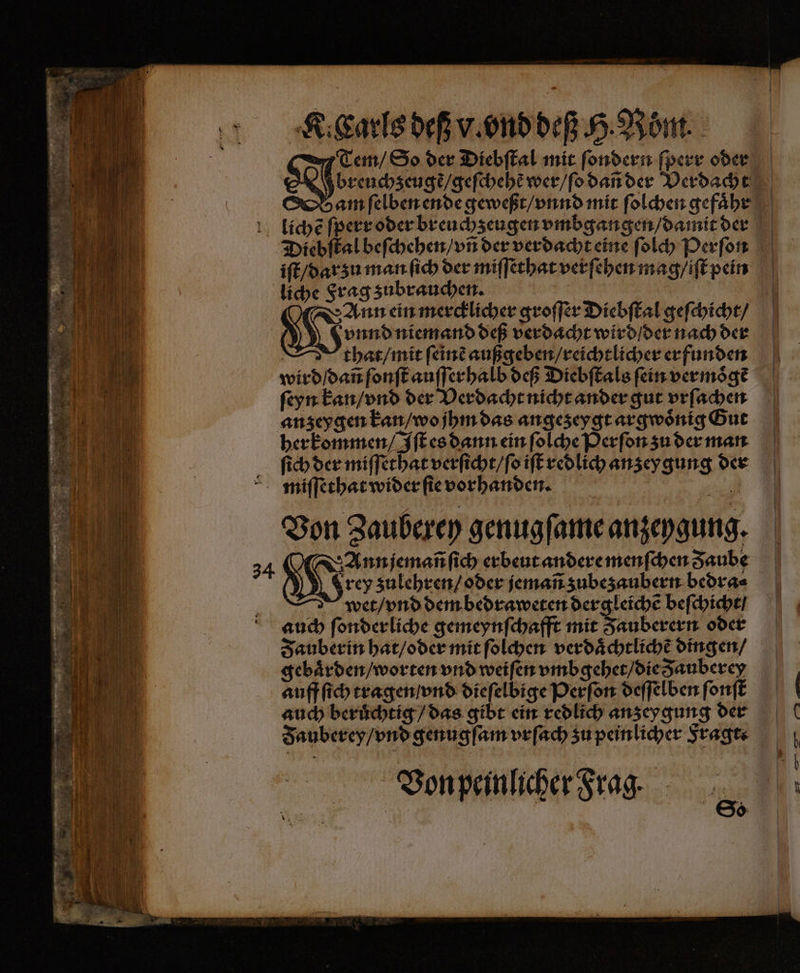 K. Carls deß v. vnd deß H. Röm.
ITem/ So der Diebſtal mit ſondern ſperr oder
breuchzeugẽ/geſchehẽ wer/ſo dañ der Verdacht
am ſelben ende geweßt/vnnd mit ſolchen gefaͤhr
lichẽ ſperr oder breuchzeugen vmbgangen/damit der
Diebſtal beſchehen/vñ der verdacht eine ſolch Perſon
iſt/darzu man ſich der miſſethat verſehen mag/iſt pein
liche Frag zubrauchen.
WAnn ein mercklicher groſſer Diebſtal geſchicht/
vnnd niemand deß verdacht wird/der nach der
that/mit ſeinẽ außgeben/reichtlicher erfunden
wird/dañ ſonſt auſſerhalb deß Diebſtals ſein vermoͤgẽ
ſeyn kan/vnd der Verdacht nicht ander gut vrſachen
anzeygen kan/wo jhm das angezeygt argwoͤnig Gut
herkommen/Iſt es dann ein ſolche Perſon zu der man
ſich der miſſethat verſicht/ſo iſt redlich anzeygung der
miſſethat wider ſie vorhanden.
Von Zauberey genugſame anzeygung.
34 WAnn jemañ ſich erbeut andere menſchen Zaube
rey zulehren/oder jemañ zubezaubern bedra⸗
wet/vnd dem bedraweten dergleichẽ beſchicht/
auch ſonderliche gemeynſchafft mit Zauberern oder
Zauberin hat/oder mit ſolchen verdaͤchtlichẽ dingen/
gebaͤrden/worten vnd weiſen vmbgehet/die Zauberey
auff ſich tragen/vnd dieſelbige Perſon deſſelben ſonſt
auch beruͤchtig/das gibt ein redlich anzeygung der
Zauberey/vnd genugſam vrſach zu peinlicher Fragt.
Von peinlicher Frag.
So